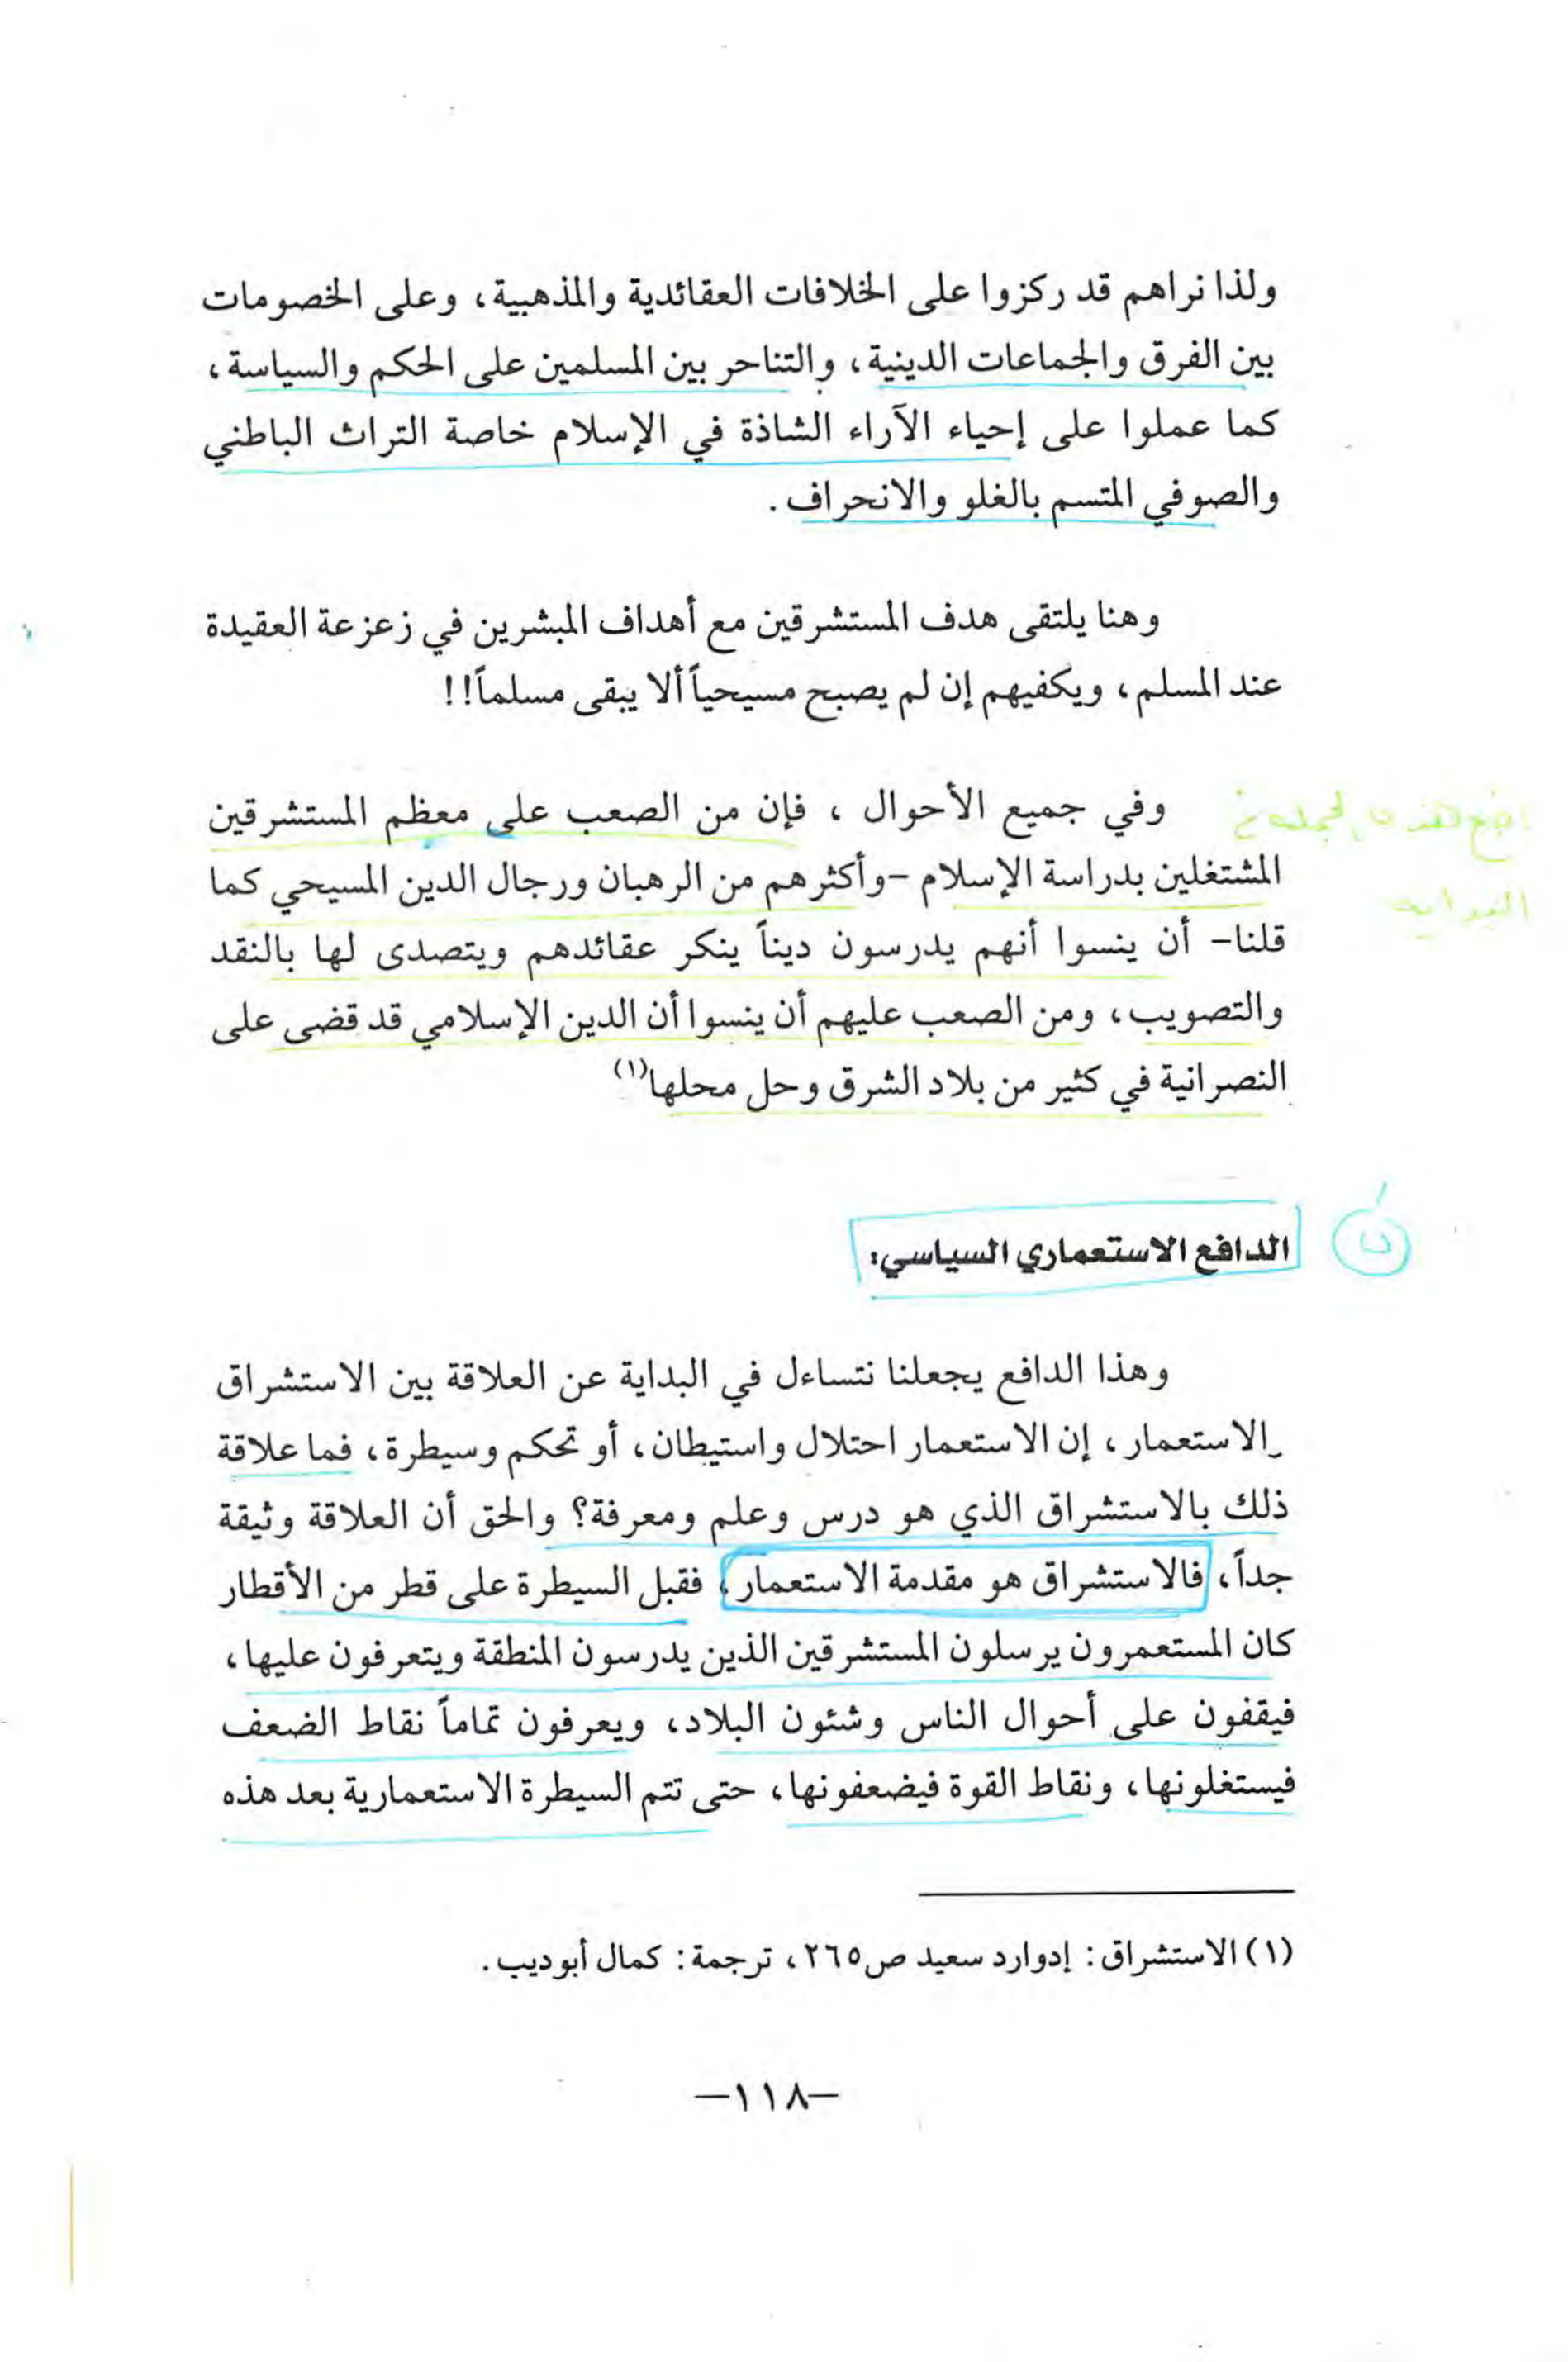 ولذا نراهم قد ركزوا على الخلافات العقائدية والمذهبية، وعلى الخصومات
بين الفرق والجماعات الدينية، والتناحر بين المسلمين على الحكم والسياسة،
كما عملوا على إحياء الآراء الشاذة في الإسلام خاصة التراث الباطني
والصوفي المتسم بالغلو والانحراف.
وهنا يلتقى هدف المستشرقين مع أهداف المبشرين في زعزعة العقيدة
عند المسلم، ويكفيهم إن لم يصبح مسيحياً ألا يبقى مسلماً!!
وفي جميع الأحوال ، فإن من الصعب على معظم المستشرقين
المشتغلين بدراسة الإسلام -وأكثرهم من الرهبان ورجال الدين المسيحي كما
قلنا- أن ينسوا أنهم يدرسون ديناً ينكر عقائدهم ويتصدى لها بالنقد
والتصويب، ومن الصعب عليهم أن ينسوا أن الدين الإسلامي قد قضى على
النصرانية في كثير من بلاد الشرق وحل محلها(١)
الدافع الاستعماري السياسي:
وهذا الدافع يجعلنا نتساءل في البداية عن العلاقة بين الاستشراق
والاستعمار، إن الاستعمار احتلال واستيطان، أو تحكم وسيطرة، فما علاقة
ذلك بالاستشراق الذي هو درس وعلم ومعرفة؟ والحق أن العلاقة وثيقة
جداً، فالاستشراق هو مقدمة الاستعمار، فقبل السيطرة على قطر من الأقطار
كان المستعمرون يرسلون المستشرقين الذين يدرسون المنطقة ويتعرفون عليها،
فيقفون على أحوال الناس وشئون البلاد، ويعرفون تماماً نقاط الضعف
فيستغلونها، ونقاط القوة فيضعفونها، حتى تتم السيطرة الاستعمارية بعد هذه
(١) الاستشراق: إدوارد سعيد ص٢٦٥، ترجمة: كمال أبوديب.
-١١٨-